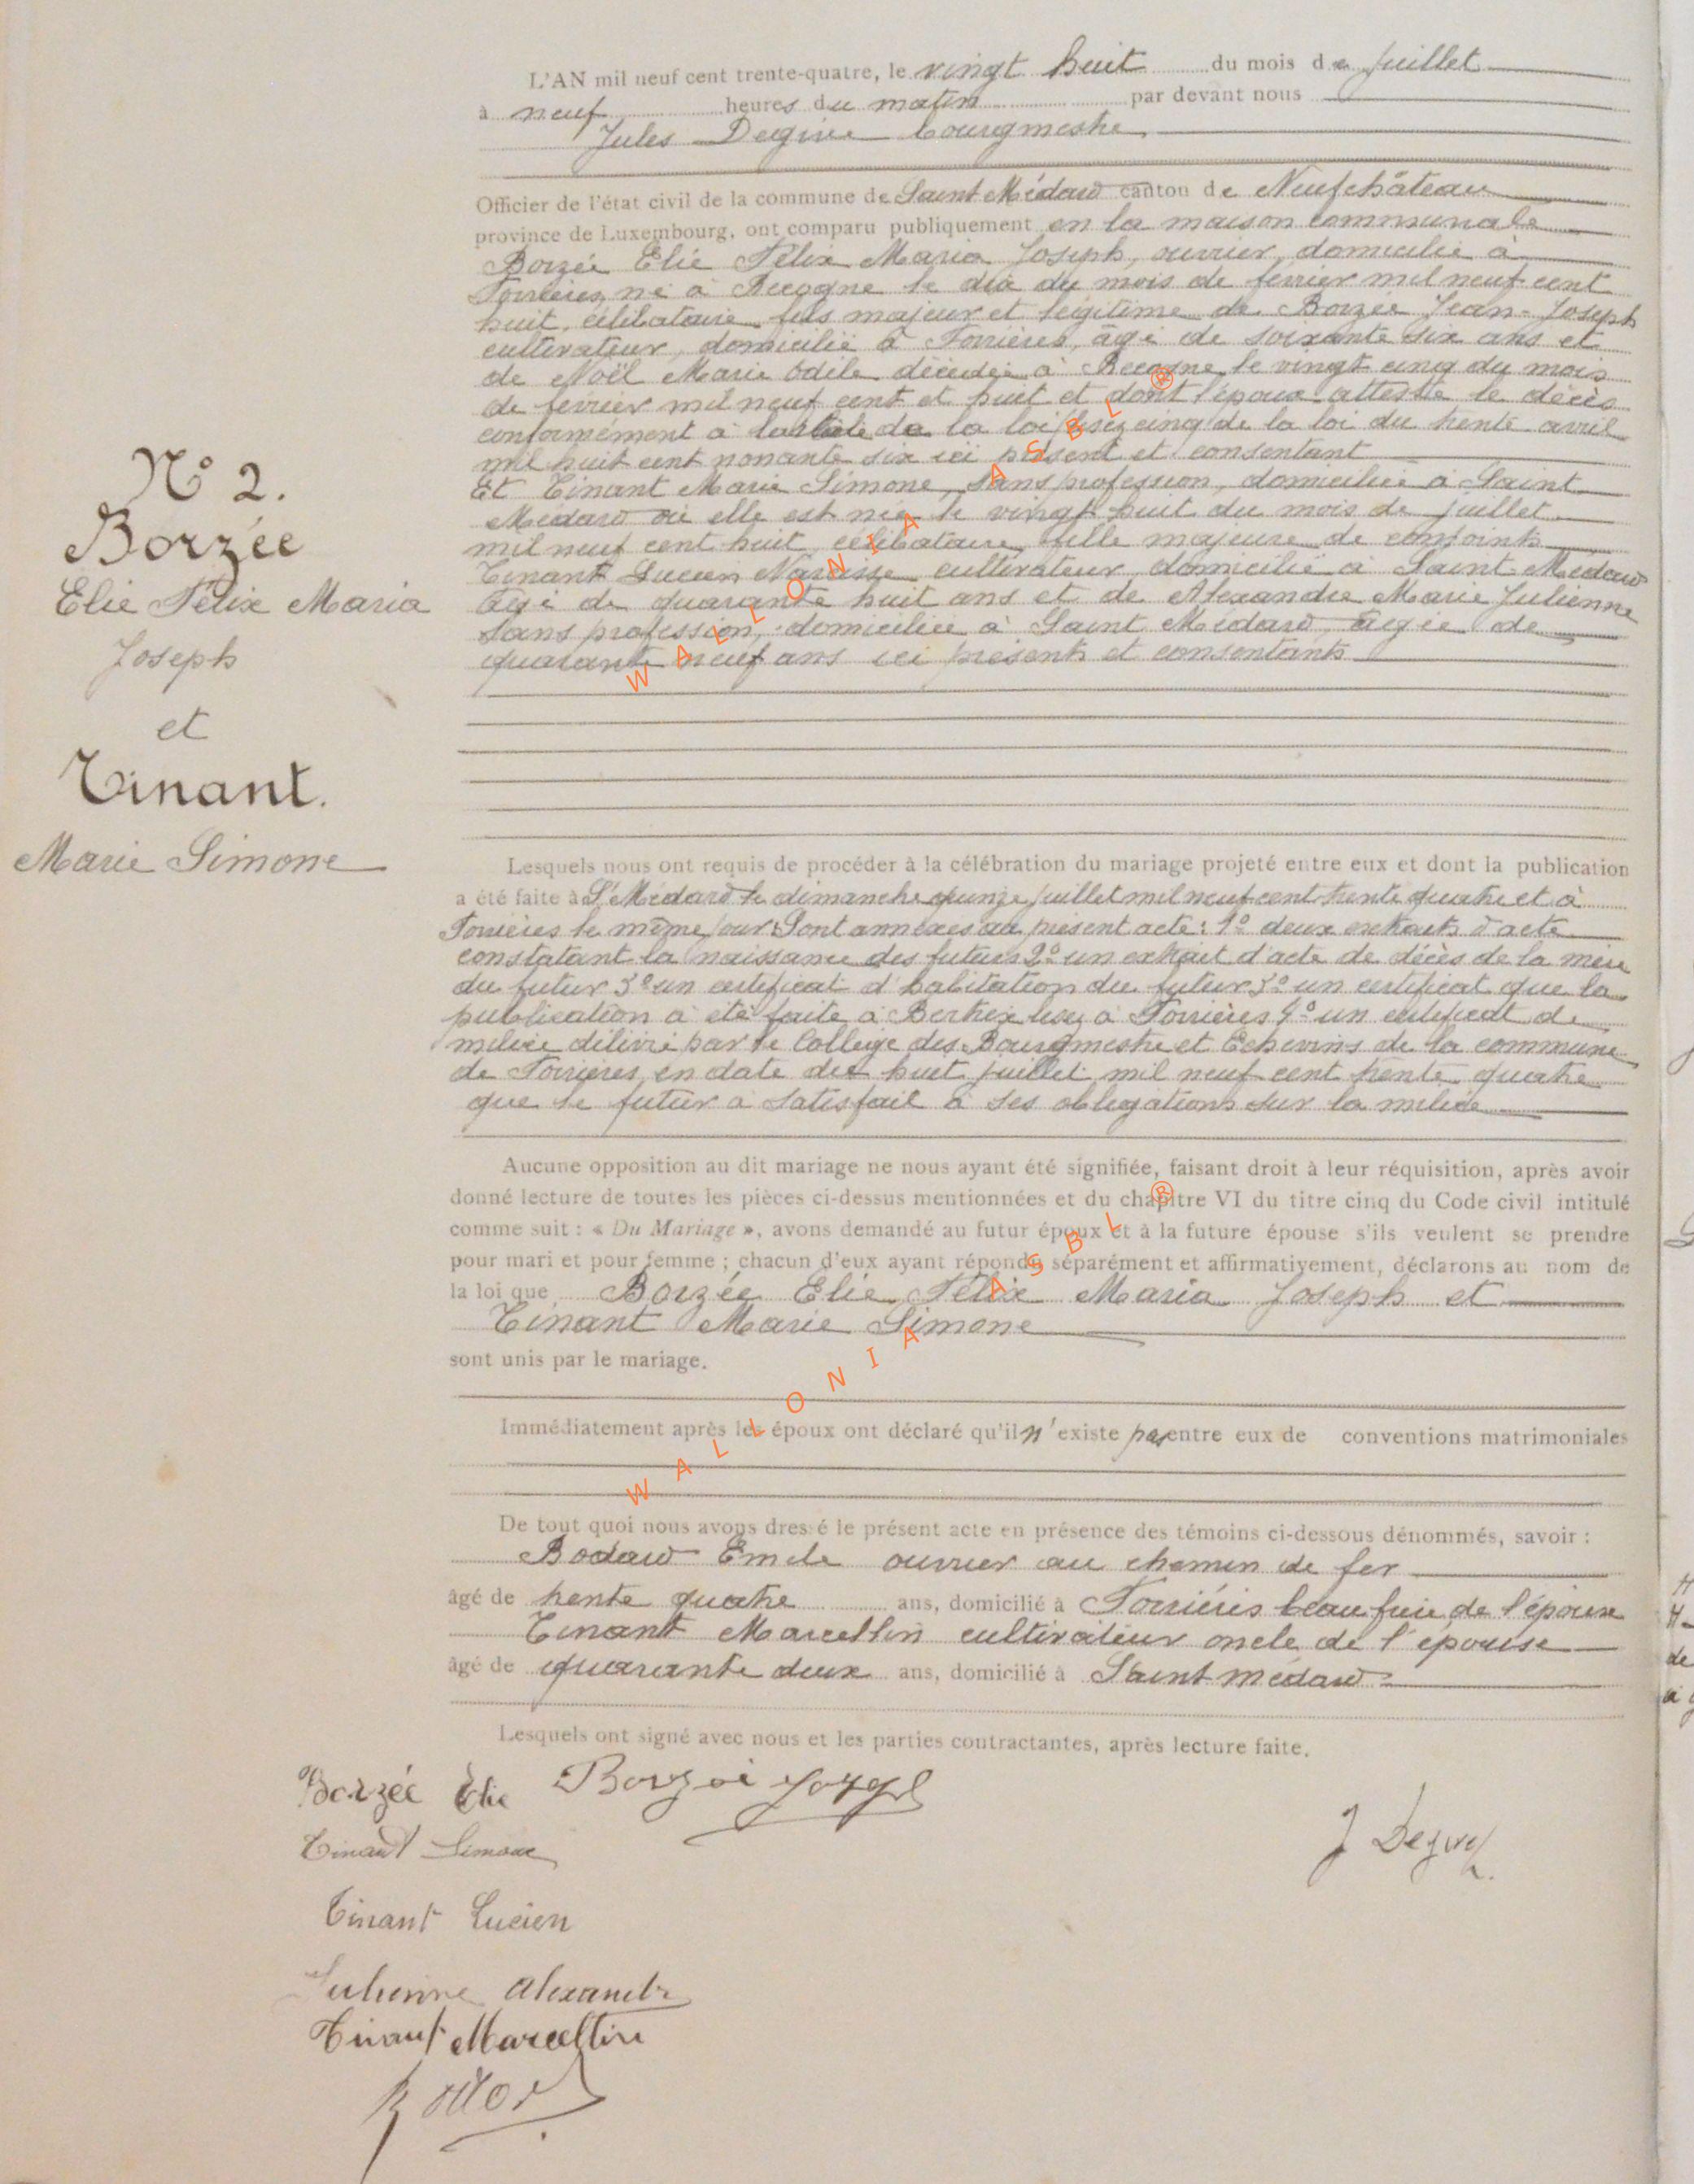 N° 2.
Borzée
Elie Félix Maria
Joseph
et
Tinant.
Marie Simone
L'AN mil neuf cent trente-quatre, le vingt huit du mois de juillet
à neuf heures du matin par devant nous
Jules Degive bourgmestre
Officier de l'état civil de la commune de Saint Médard canton de Neufchâteau
province de Luxembourg, ont comparu publiquement en la maison communale
Borzée Elie Félix Maria Joseph, ouvrier, domicilié à
Forrières, né à Recogne le dix du mois de février mil neuf cent
huit, célibataire fils majeur et légitime de Borzée Jean-Joseph
cultivateur, domicilié à Forrières, âgé de soixante six ans et
de Noël Marie Odile décédée à Recogne le vingt cinq du mois
de février mil neuf cent et huit et dont l'époux atteste le décès
conformément à de la loi lisez cinq de la loi du trente avril
mil huit cent nonante six ici présent et consentant
Et Tinant Marie Simone, sans profession, domiciliée à Saint
Médard où elle est née le vingt huit du mois de juillet
mil neuf cent huit, célibataire, fille majeure de conjoints
Tinant Lucien Narcisse cultivateur, domicilié à Saint-Médard
âgé de quarante huit ans et de Alexandre Marie Julienne
sans profession, domiciliée à Saint Médard âgée de
quarante neuf ans ici présents et consentants
Lesquels nous ont requis de procéder à la célébration du mariage projeté entre eux et dont la publication
a été faite à St Médard le dimanche quinze juillet mil neuf cent trente quatre et à
Forrières le même jour. Sont annexés au présent acte : 1° deux extraits d'acte
constatant la naissance des futurs 2° un extrait d'acte de décès de la mère
du futur 3° un certificat d'habitation du futur 3° un certificat que la
publication a été faite à Bertrix lisez à Forrières 4° un certificat de
milice délivré par le Collège des Bourgmestre et Echevins de la commune
de Forrières, en date du huit juillet mil neuf cent trente quatre
que le futur a satisfait à ses obligations sur la milice
Aucune opposition au dit mariage ne nous ayant été signifiée, faisant droit à leur réquisition, après avoir
donné lecture de toutes les pièces ci-dessus mentionnées et du chapitre VI du titre cinq du Code civil intitulé
comme suit : « Du Mariage », avons demandé au futur époux et à la future épouse s'ils veulent se prendre
pour mari et pour femme ; chacun d'eux ayant répondu séparément et affirmativement, déclarons au nom de
la loi que Borzée Elie Félix Maria Joseph et
Tinant Marie Simone
sont unis par le mariage.
Immédiatement après les époux ont déclaré qu'il n'existe pas entre eux de conventions matrimoniales
De tout quoi nous avons dressé le présent acte en présence des témoins ci-dessous dénommés, savoir :
Bodard Emile ouvrier au chemin de fer
âgé de trente quatre ans, domicilié à Forrières beau frère de l'époux
Tinant Marcellin cultivateur oncle de l'épouse
âgé de quarante deux ans, domicilié à Saint médard
Lesquels ont signé avec nous et les parties contractantes, après lecture faite.
Borzée Elie Borzée Joseph
Tinant Simone
J Degive
Tinant Lucien
Julienne Alexandre
Tinant Marcellin
WALLONIA ASBL ®
WALLONIA ASBL ®